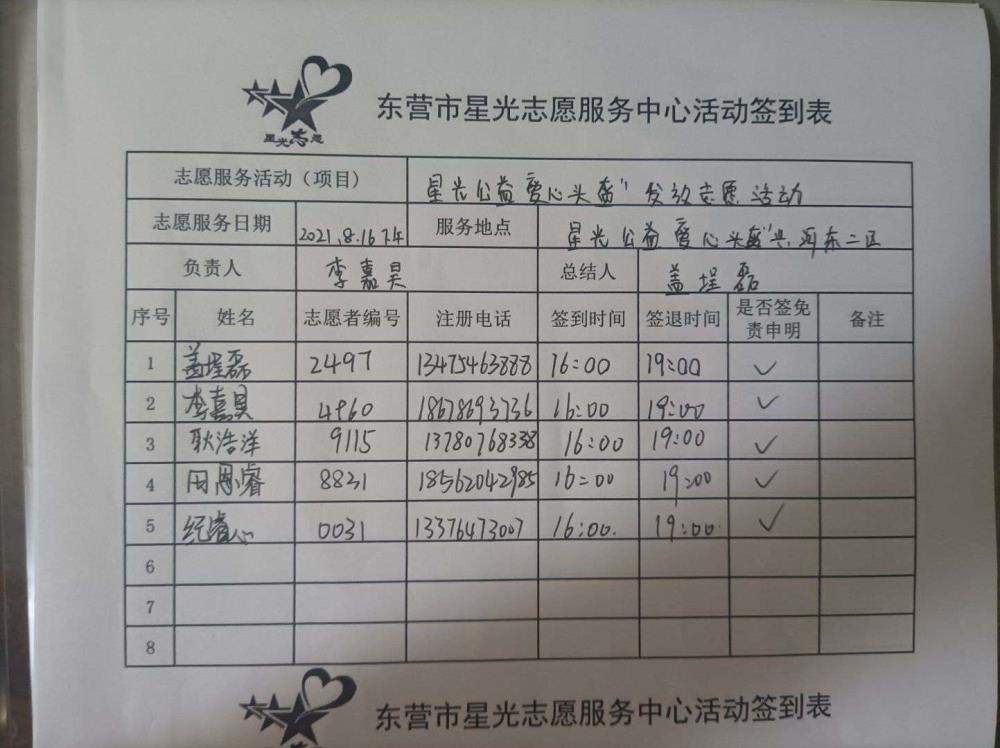 星光志愿
东营市星光志愿服务中心活动签到表
志愿服务活动（项目） 星光公益爱心头盔"发放志愿活动
志愿服务日期 2021.8.16下午 服务地点 星光公益爱心头盔" 河东二区
负责人 李嘉昊 总结人 盖埕磊
序号 姓名 志愿者编号 注册电话 签到时间 签退时间 是否签免责申明 备注
1 盖埕磊 2497 13475463888 16:00 19:00 ✓
2 李嘉昊 4960 18678693736 16:00 19:00 ✓
3 耿浩洋 9115 13780768338 16:00 19:00 ✓
4 田恩睿 8831 18562042985 16:00 19:00 ✓
5 纪睿心 0031 13376473007 16:00. 19:00. ✓
6
7
8
东营市星光志愿服务中心活动签到表